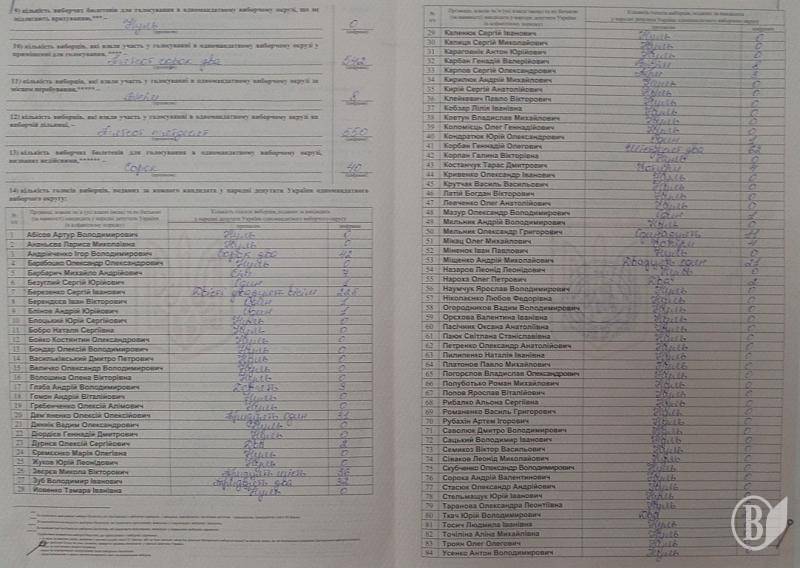 9) кількість виборчих бюлетенів для голосування в одномандатному виборчому окрузі, що не
підлягають врахуванню,*** –
Нуль 0
(прописом) (цифрами)
10) кількість виборців, які взяли участь у голосуванні в одномандатному виборчому окрузі у
приміщенні для голосування, **** –
П'ятсот сорок два 542
(прописом) (цифрами)
11) кількість виборців, які взяли участь у голосуванні в одномандатному виборчому окрузі за
місцем перебування,***** –
Вісім 8
(прописом) (цифрами)
12) кількість виборців, які взяли участь у голосуванні в одномандатному виборчому окрузі на
виборчій дільниці, –
П'ятсот п'ятдесят 550
(прописом) (цифрами)
13) кількість виборчих бюлетенів для голосування в одномандатному виборчому окрузі,
визнаних недійсними,****** –
Сорок 40
(прописом) (цифрами)
14) кількість голосів виборців, поданих за кожного кандидата у народні депутати України одномандатного
виборчого округу:
№ з/п Прізвище, власне ім'я (усі власні імена) та по батькові (за наявності) кандидата у народні депутати України (в алфавітному порядку) Кількість голосів виборців, поданих за кандидата у народні депутати України одномандатного виборчого округу
прописом цифрами
1 Абісов Артур Володимирович Нуль 0
2 Ананьєва Лариса Миколаївна Нуль 0
3 Андрійченко Ігор Володимирович Сорок два 42
4 Барабошко Олександр Олександрович Нуль 0
5 Барбарич Михайло Андрійович Сім 7
6 Безуглий Сергій Юрійович Один 1
7 Березенко Сергій Іванович Двісті двадцять вісім 228
8 Берендєєв Іван Вікторович Один 1
9 Блінов Андрій Юрійович Один 1
10 Блоцький Юрій Сергійович Нуль 0
11 Бобро Наталя Сергіївна Нуль 0
12 Бойко Костянтин Олександрович Нуль 0
13 Бондар Олексій Володимирович Нуль 0
14 Васильківський Дмитро Петрович Нуль 0
15 Величко Олександр Володимирович Нуль 0
16 Волошина Олена Вікторівна Нуль 0
17 Глаба Андрій Володимирович
18 Гомон Андрій Віталійович Нуль 0
19 Гребенченко Олексій Алімович Нуль 0
20 Дем'яненко Олексій Олексійович Тридцять один 31
21 Диннік Вадим Олександрович Нуль 0
22 Діордієв Геннадій Дмитрович Нуль 0
23 Дурнєв Олексій Сергійович Два 2
24 Єремєєнко Марія Олегівна Нуль 0
25 Жуков Юрій Леонідович Нуль 0
26 Звєрєв Микола Вікторович Тридцять шість 36
27 Зуб Володимир Іванович Тридцять два 32
28 Йовенко Тамара Іванівна Нуль 0
№ з/п Прізвище, власне ім'я (усі власні імена) та по батькові (за наявності) кандидата у народні депутати України (в алфавітному порядку) Кількість голосів виборців, поданих за кандидата у народні депутати України одномандатного виборчого округу
прописом цифрами
29 Каленюк Сергій Іванович Нуль 0
30 Капиця Сергій Миколайович Нуль 0
31 Карагоянік Антон Юрійович Нуль 0
32 Карбан Генадій Валерійович
33 Карпов Сергій Олександрович Три 3
34 Кирилюк Андрій Миколайович Нуль 0
35 Кирій Сергій Анатолійович Нуль 0
36 Клейкевич Павло Вікторович Нуль 0
37 Кобзар Лілія Іванівна Нуль 0
38 Ковтун Владислав Михайлович Нуль 0
39 Коломієць Олег Геннадійович Нуль 0
40 Кондратюк Юрій Олександрович Один 1
41 Корбан Геннадій Олегович
42 Корпан Галина Вікторівна Нуль 0
43 Костанчук Тарас Дмитрович Чотири 4
44 Кривенко Олександр Іванович Нуль 0
45 Крутчак Василь Васильович Нуль 0
46 Латій Богдан Вікторович Нуль 0
47 Левченко Олег Анатолійович Нуль 0
48 Мазур Олександр Володимирович Один 1
49 Мельник Андрій Володимирович Нуль 0
50 Мельник Олександр Григорович
51 Мікац Олег Михайлович Чотири 4
52 Міненок Іван Павлович Нуль 0
53 Міщенко Андрій Миколайович Двадцять один 21
54 Назаров Леонід Леонідович Нуль 0
55 Нароха Олег Петрович Два 2
56 Наумчук Ярослав Володимирович Нуль 0
57 Ніколаєнко Любов Федорівна Нуль 0
58 Огородников Вадим Володимирович Нуль 0
59 Орєхова Валентина Іванівна Нуль 0
60 Пасічник Оксана Анатоліївна Нуль 0
61 Паюк Світлана Станіславівна Нуль 0
62 Петренко Олександр Анатолійович Нуль 0
63 Пилипенко Наталія Іванівна Нуль 0
64 Платонов Павло Михайлович Нуль 0
65 Погорєлов Владислав Олександрович Нуль 0
66 Полуботько Роман Михайлович Нуль 0
67 Попов Ярослав Віталійович Нуль 0
68 Рибалко Альона Сергіївна Нуль 0
69 Романенко Василь Григорович Нуль 0
70 Рубахін Артем Ігорович Нуль 0
71 Саволюк Дмитро Володимирович Нуль 0
72 Сацький Володимир Іванович Нуль 0
73 Семикоз Віктор Васильович Нуль 0
74 Сіваков Леонід Миколайович Нуль 0
75 Скубченко Олександр Володимирович Нуль 0
76 Сорока Андрій Валентинович Нуль 0
77 Стасюк Олександр Андрійович Нуль 0
78 Стельмащук Юрій Іванович Нуль 0
79 Таранова Олександра Леонтіївна Нуль 0
80 Ткач Юрій Володимирович Два
81 Тосич Людмила Іванівна Нуль 0
82 Точіліна Аліна Михайлівна Нуль 0
83 Троян Олег Олегович Нуль 0
84 Усенко Антон Володимирович Нуль 0
В